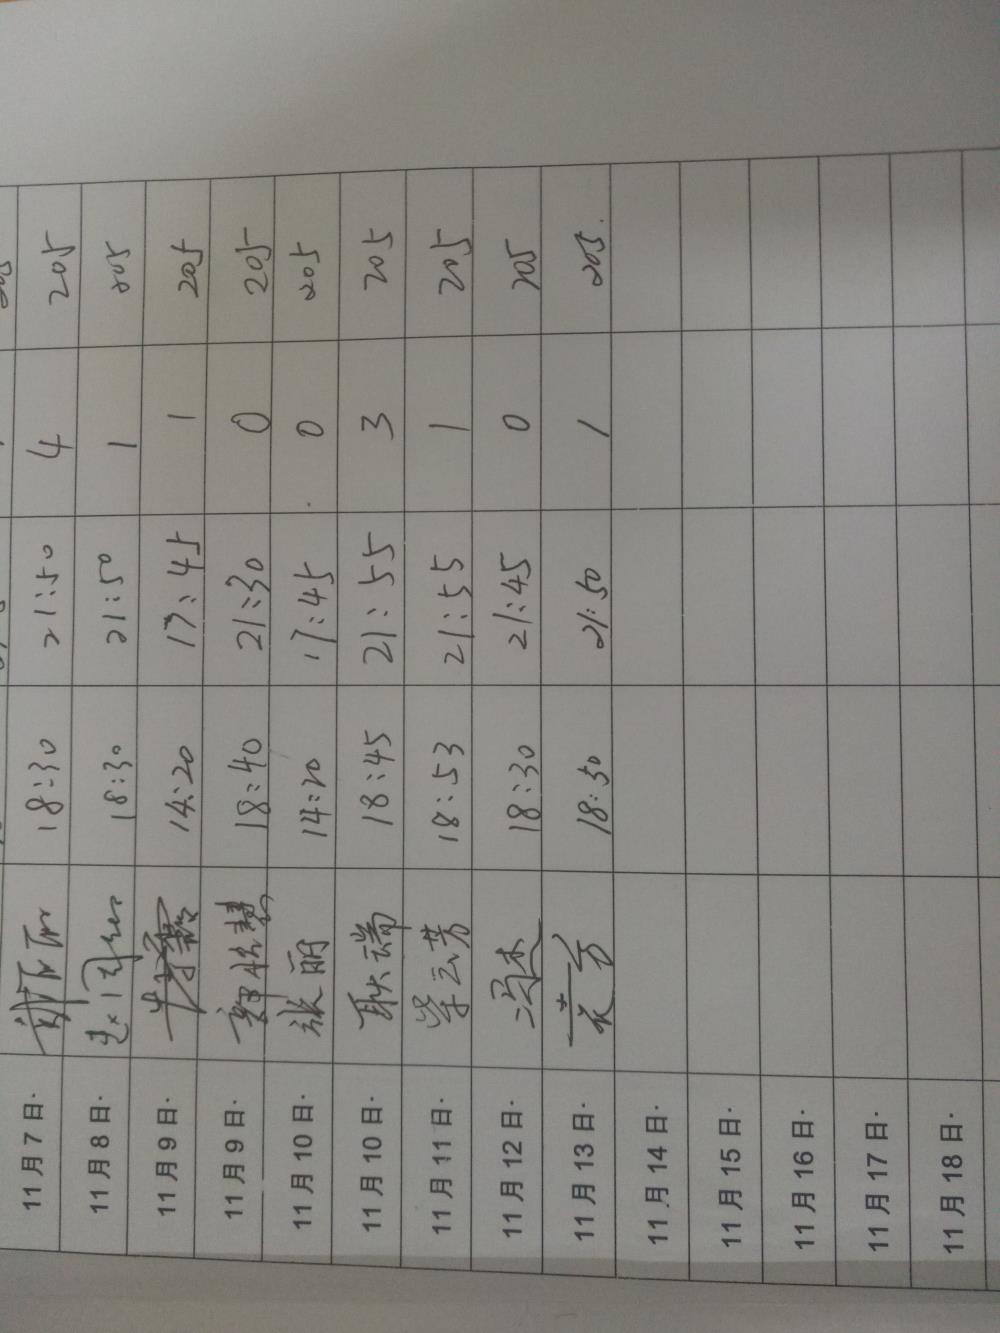 11月7日 18:30 21:50 4 205
11月8日 18:30 21:50 1 205
11月9日 14:20 17:45 1 205
11月9日 18:40 21:30 0 205
11月10日 张丽 14:20 17:45 0 205
11月10日 耿端 18:45 21:55 3 205
11月11日 18:53 21:55 1 205
11月12日 冯杰 18:30 21:45 0 205
11月13日 18:50 21:50 1 205.
11月14日
11月15日
11月16日
11月17日
11月18日